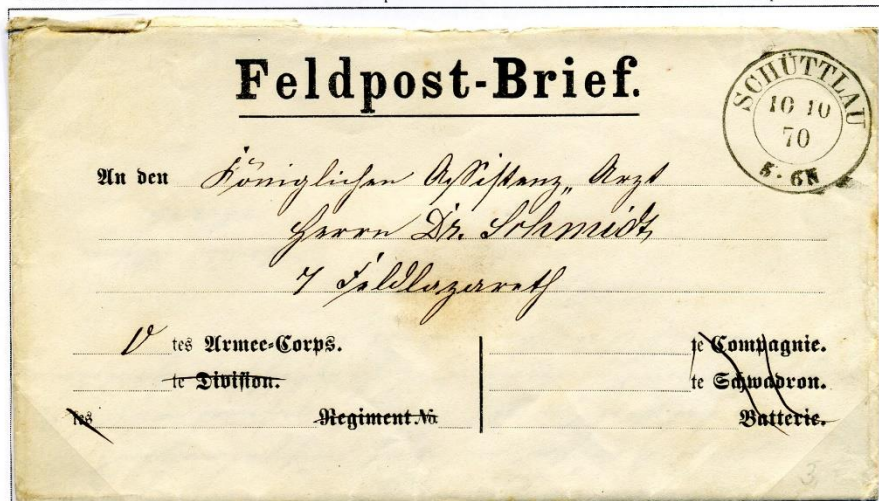 Feldpost-Brief.
SCHÜTTLAU
10 10
70
5-6N
An den Königlichen Assistenz„ Arzt
Herrn Dr. Schmidt,
7 Feldlazareth
V tes Armee-Corps.
te Division.
tes Regiment No
te Compagnie.
te Schwadron.
Batterie.
3,-